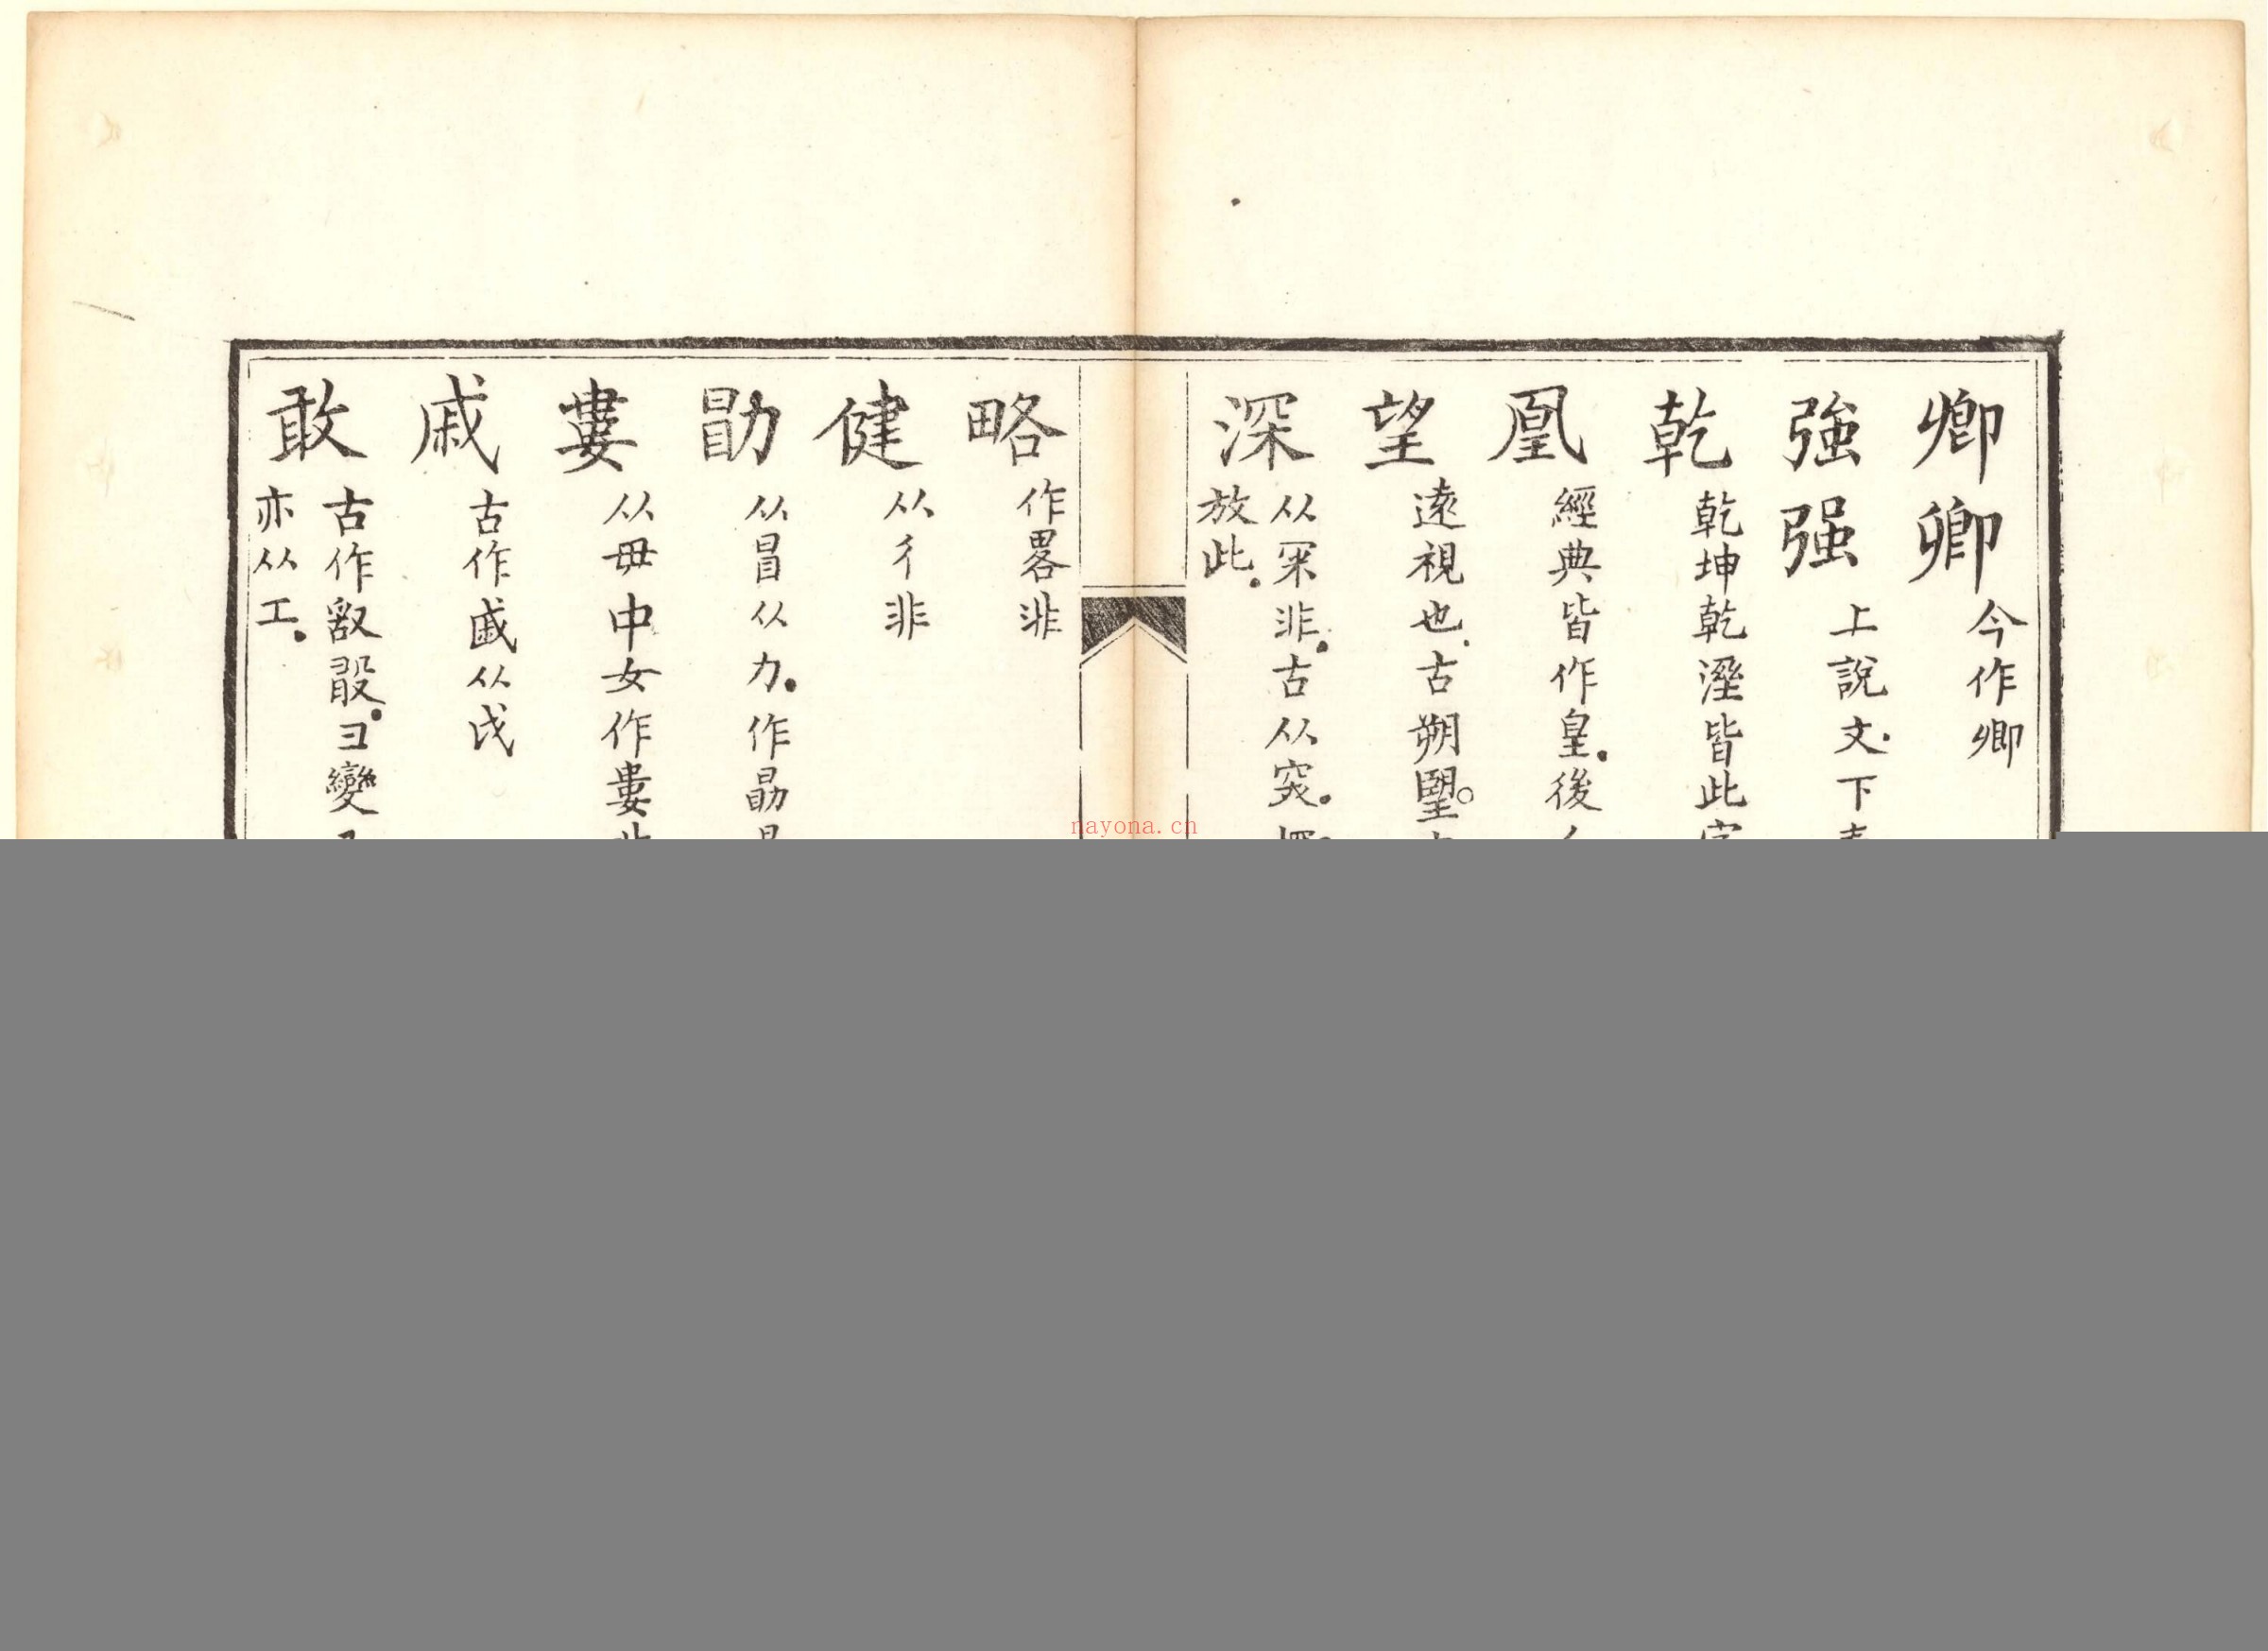 卿卿今作卿
強强上說文下
乾乾坤乾溼皆此字
凰經典皆作皇後
望遠視也古朔朢
深从罙非古从穾
放此
略作畧非
健从彳非
勖从冒从力作勗
婁从毋中女作婁
戚古作戚从戉
敢古作𣪏㪉彐變
亦从工
nayona.cn